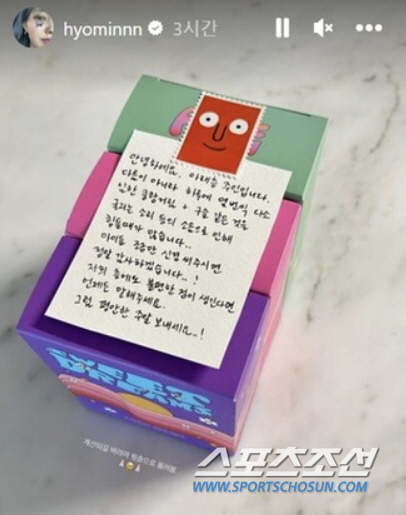 hyominnn 3시간
안녕하세요. 아래층 주민입니다.
다름이 아니라 하루에 몇번씩 다소
심한 쿵쾅거림 + 구슬 같은 것을
굴리는 소리 등의 소음으로 인해
힘들때가 많습니다..
아이도 조금만 신경 써주시면
정말 감사하겠습니다..!
저희 층에도 불편한 점이 생긴다면
언제든 말해주세요.
그럼 평안한 주말 보내세요..!
SWEET
DREAMS
개선되길 바라며 맞춤으로 올려용
스포츠조선
WWW.SPORTSCHOSUN.COM